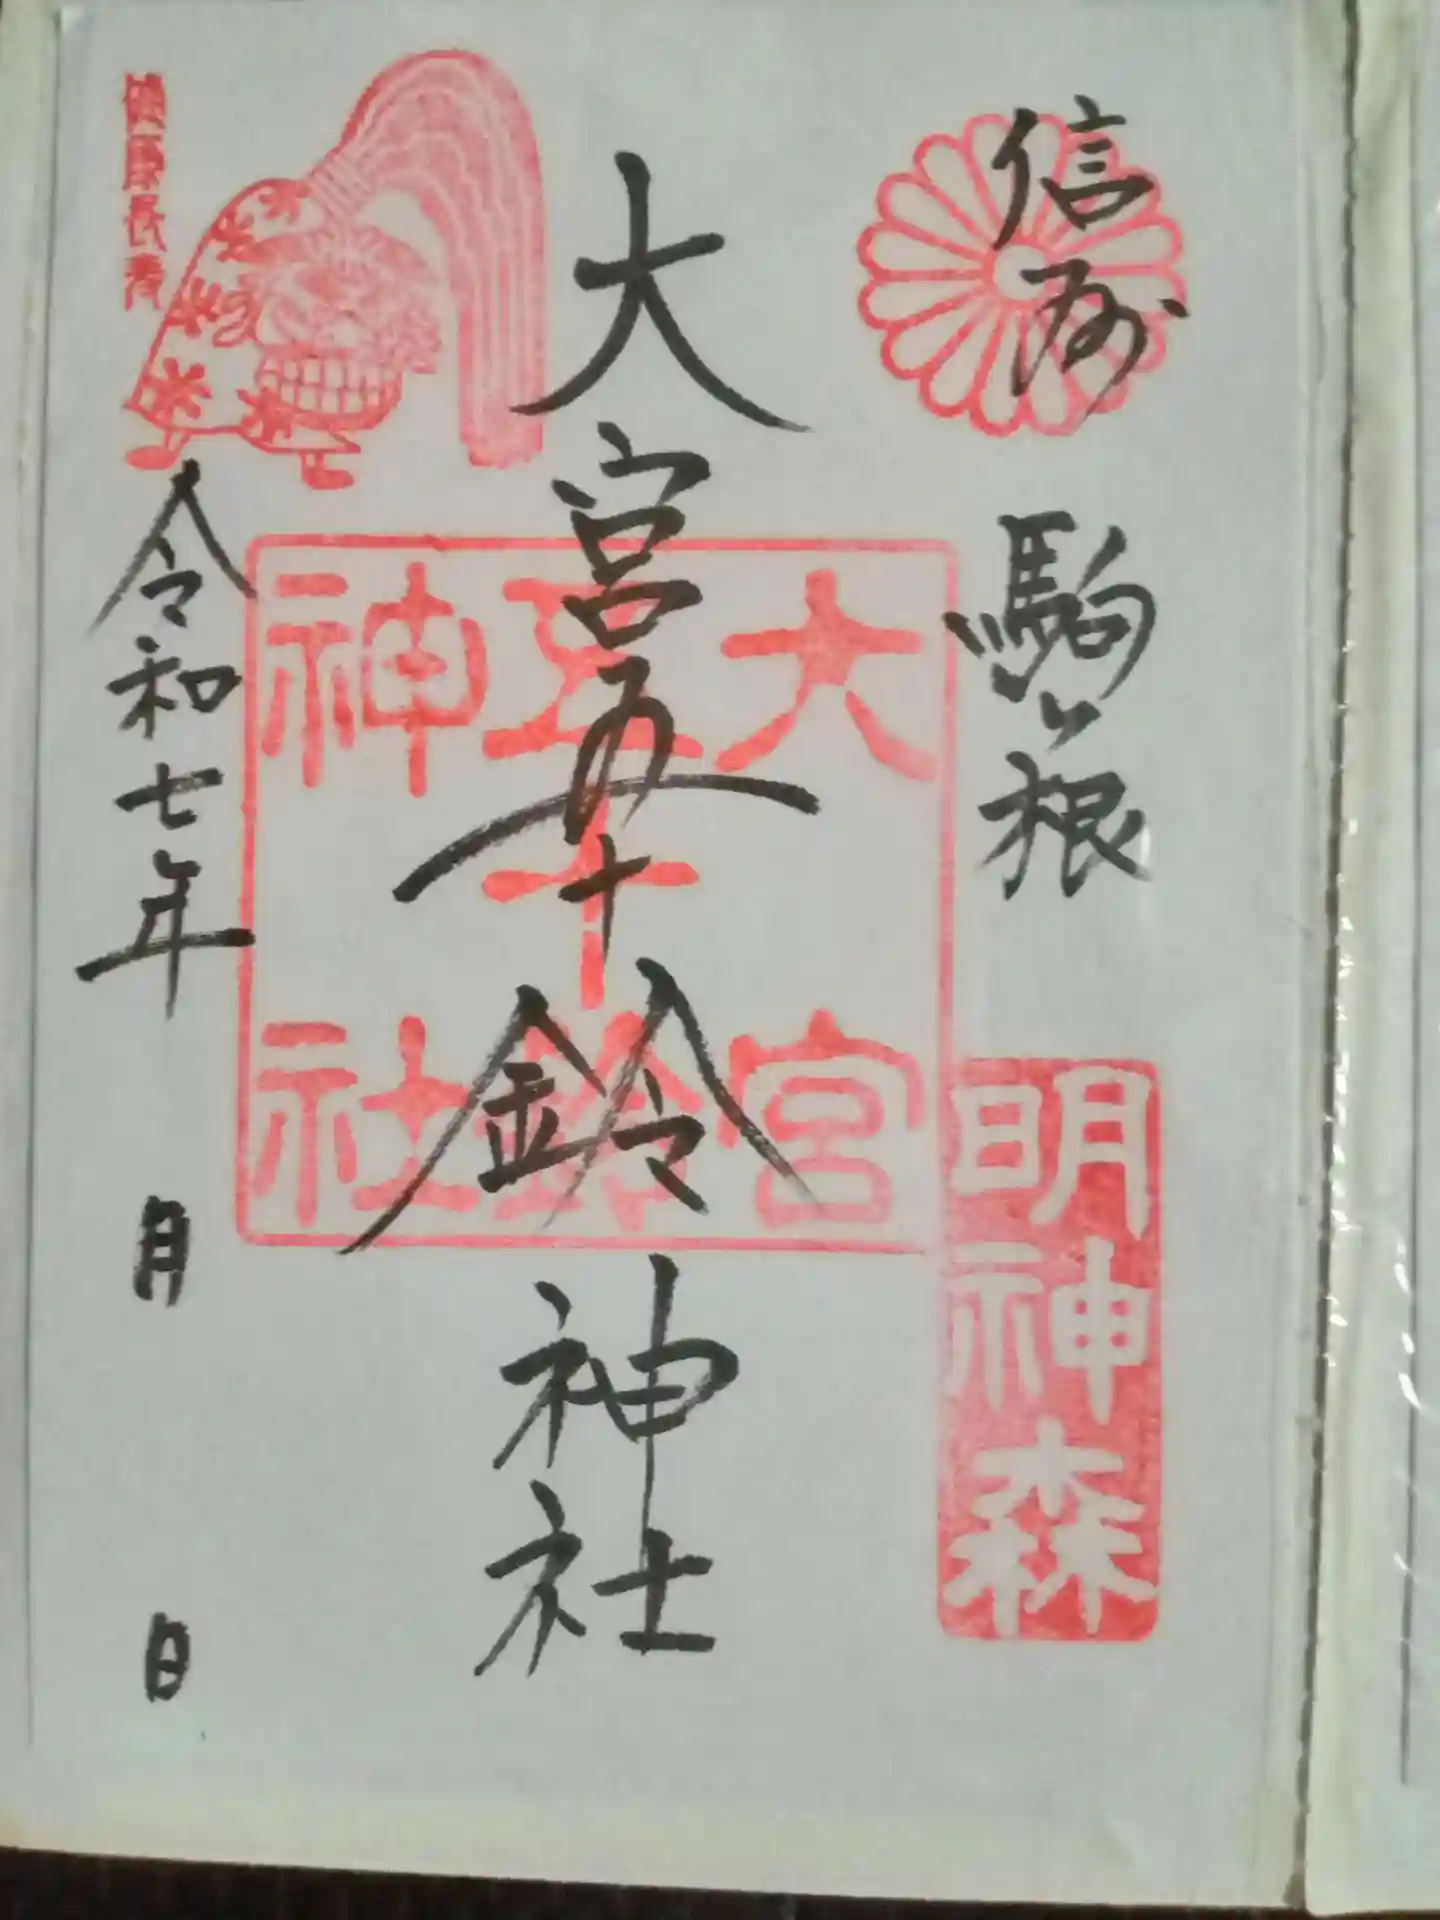 信州
駒ヶ根
明神森
大宮五十鈴神社
大宮
五十鈴
神社
健康長寿
令和七年
月
日